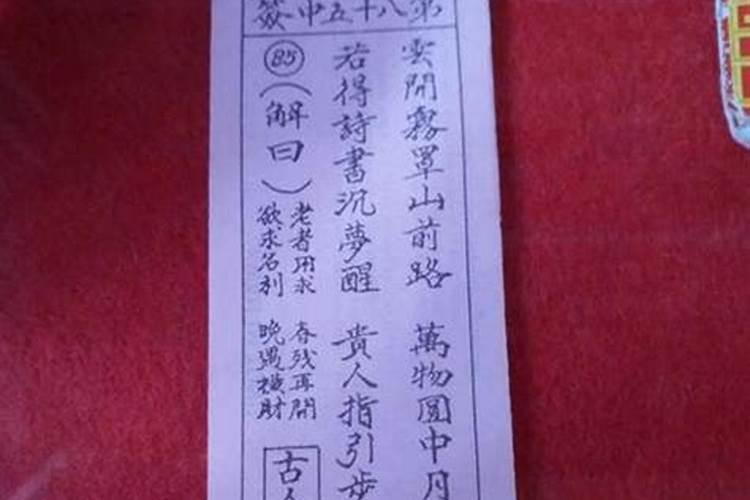 第八十五中簽
雲開霧罩山前路 萬物圓中月
若得詩書沉夢醒 貴人指引步
85
(解曰)
老者用求 春残再開
欲求名利 晚遇橫財
古